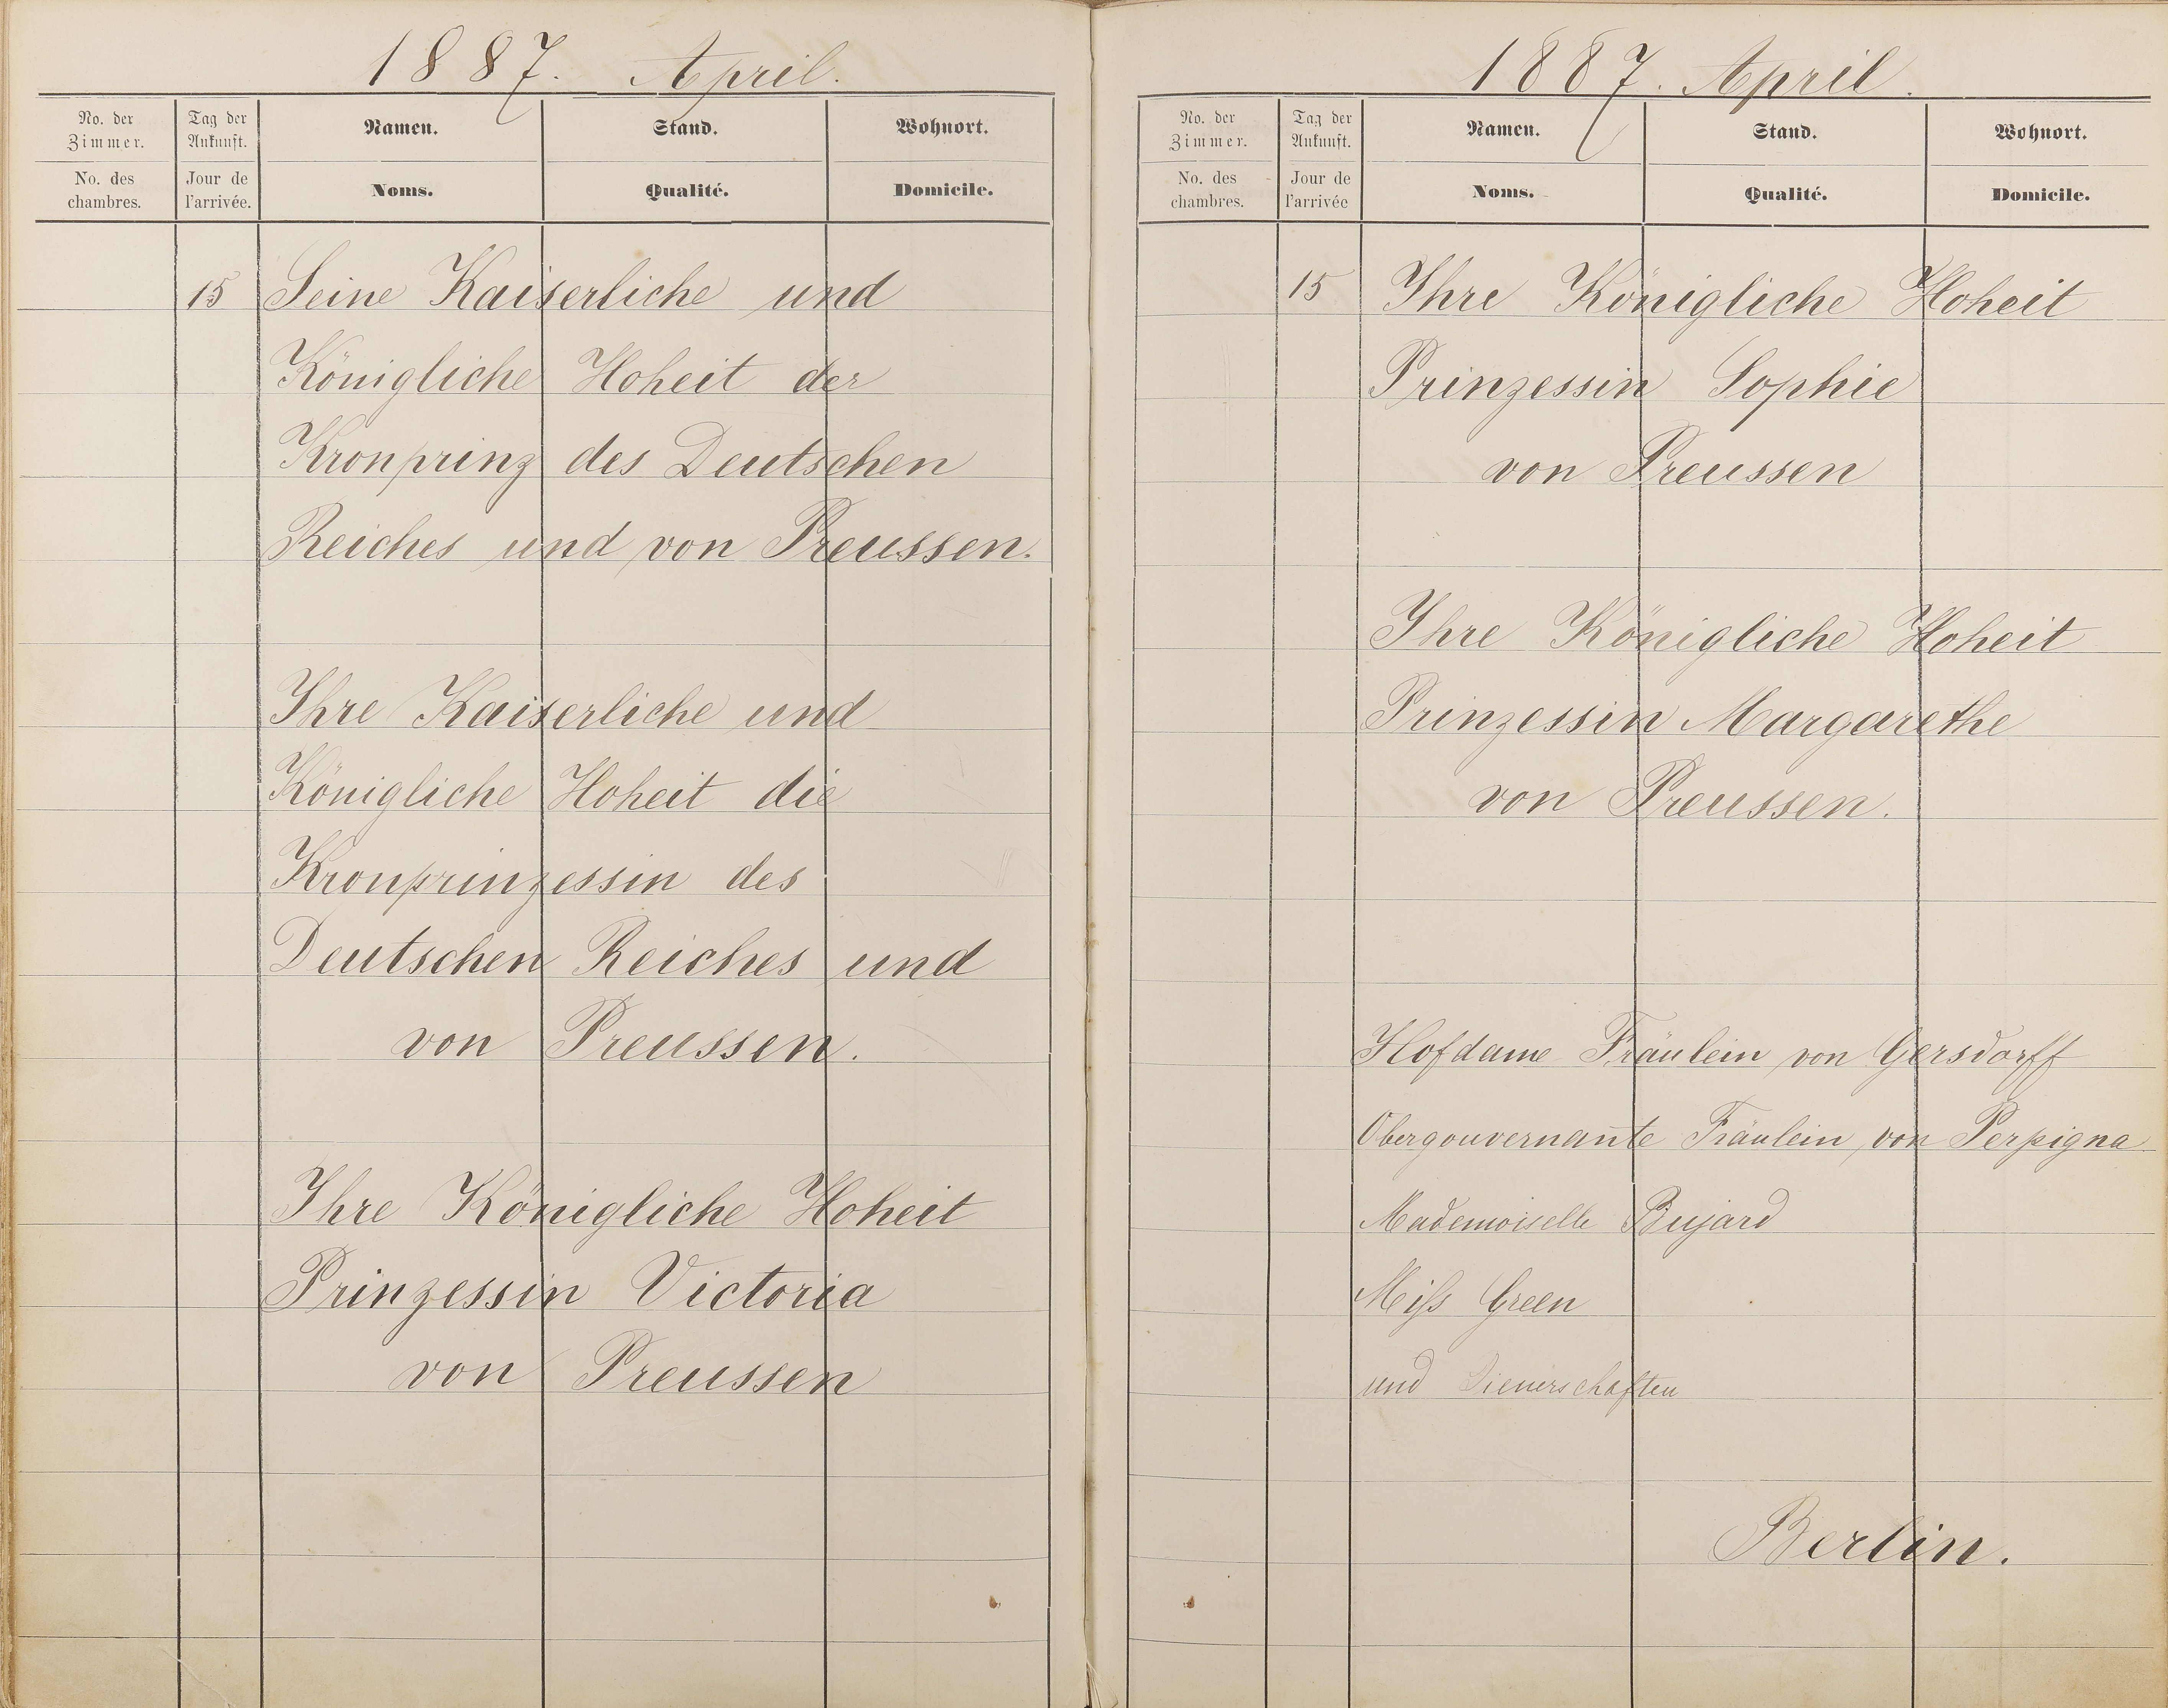 1887. April.
No. der Zimmer. Tag der Ankunft. Namen. Stand. Wohnort.
No. des chambres. Jour de l'arrivée. Noms. Qualité. Domicile.
15 Seine Kaiserliche und
Königliche Hoheit der
Kronprinz des Deutschen
Reiches und von Preussen.
Ihre Kaiserliche und
Königliche Hoheit die
Kronprinzessin des
Deutschen Reiches und
von Preussen.
Ihre Königliche Hoheit
Prinzessin Victoria
von Preussen
1887. April.
No. der Zimmer. Tag der Ankunft. Namen. Stand. Wohnort.
No. des chambres. Jour de l'arrivée Noms. Qualité. Domicile.
15 Ihre Königliche Hoheit
Prinzessin Sophie
von Preussen
Ihre Königliche Hoheit
Prinzessin Margarethe
von Preussen.
Hofdame Fräulein von Gersdorff
Obergouvernante Fräulein von Perpigna
Mademoiselle Bujard
Miſs Green
und Dienerschaften
Berlin.